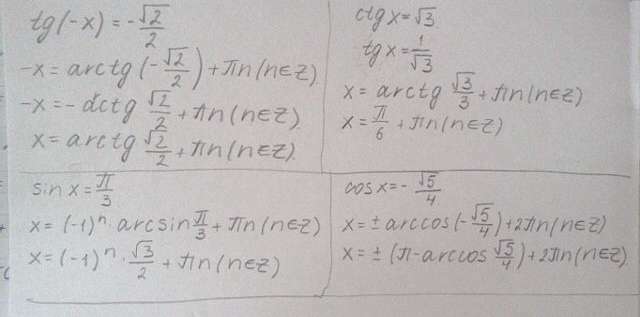 tg(-x) = -√2/2
-x = arctg(-√2/2) + πn(n∈Z)
-x = -arctg √2/2 + πn(n∈Z)
x = arctg √2/2 + πn(n∈Z)
ctg x = √3
tg x = 1/√3
x = arctg √3/3 + πn(n∈Z)
x = π/6 + πn(n∈Z)
sin x = π/3
x = (-1)ⁿ · arcsin π/3 + πn(n∈Z)
x = (-1)ⁿ · √3/2 + πn(n∈Z)
cos x = -√5/4
x = ± arccos(-√5/4) + 2πn(n∈Z)
x = ± (π - arccos √5/4) + 2πn(n∈Z)